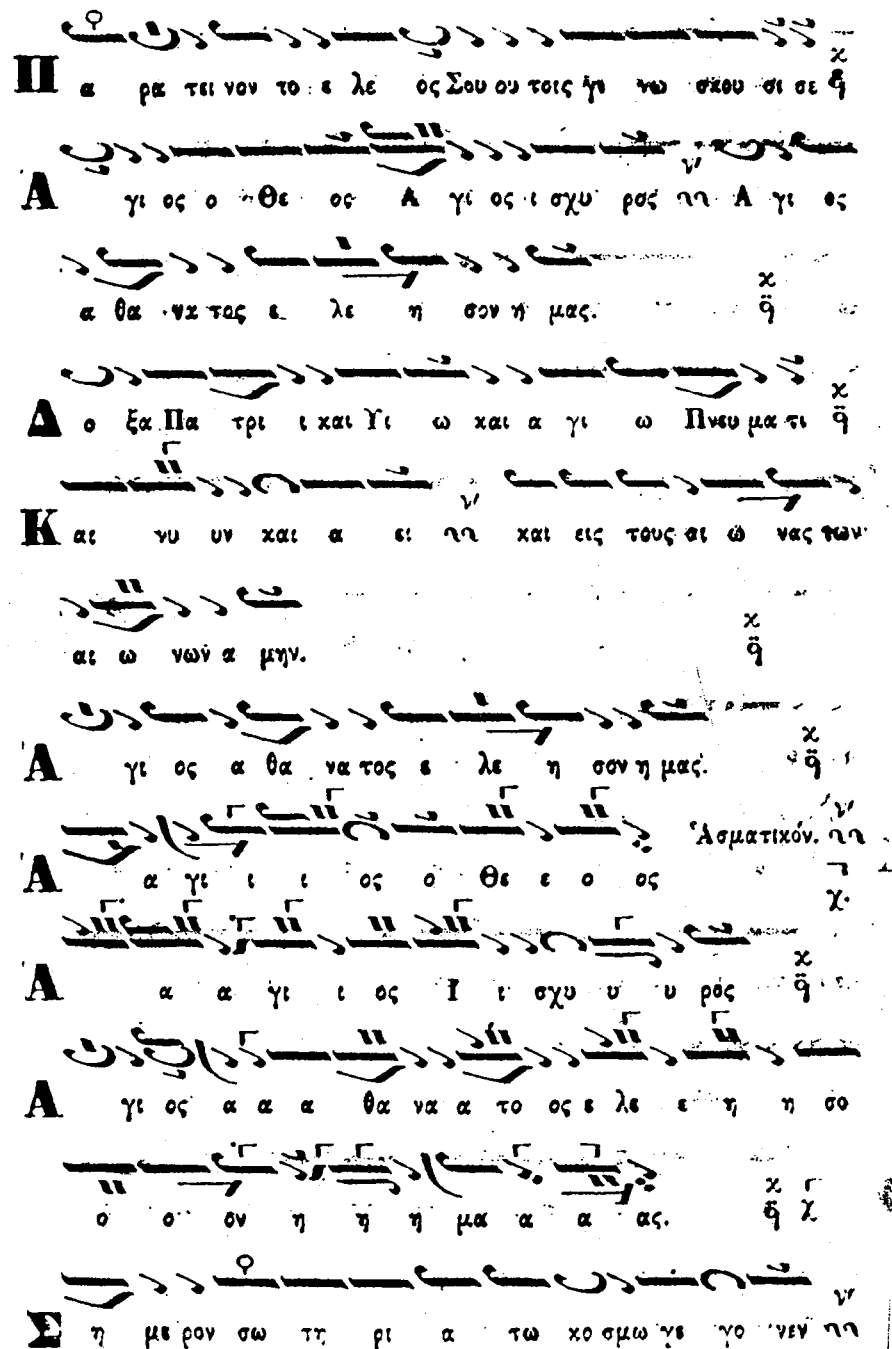 Πα ρα τει νον το ε λε ός Σου ου τοις γι νω σκου σι σε
Ἁ γι ος ο Θε ος Α γι ος ι σχυ ρος Α γι ος
α θα να τος ε λε ή σον ή μας.
Δο ξα Πα τρι ι και Υι ω και α γι ω Πνευ μα τι
Και νυ υν και α ει και εις τους αι ώ νας των
αι ω νων α μην.
Ἁ γι ος α θα να τος ε λε η σον η μας.
Ἁ α γι ι ι ος ο Θε ε ο ος Ἁσματικόν.
Ἁ α α γι ι ος Ι ι σχυ υ υ ρος
Ἁ γι ος α α α θα να α το ος ε λε ε η η σο
ο ο ον η ή ή μα α α ας.
Ση με ρον σω τη ρι α τω κο σμω γε γο νεν